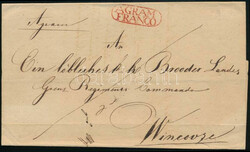 AGRAM
FRANCO
Agram
An
Ein Löbliches k. k. Brooder
Grenz Regiments Commando
Wincovze